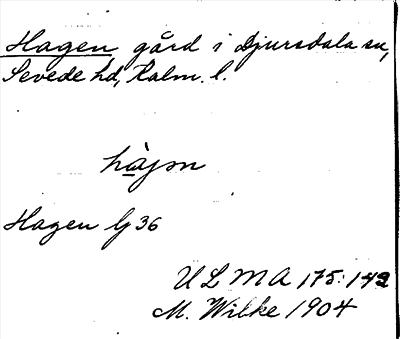 Hagen gård i Djursdala sn,
Sevede hd, Kalm. l.
hàjən
Hagen Lj 36
ULMA 175:142
M. Wibke 1904